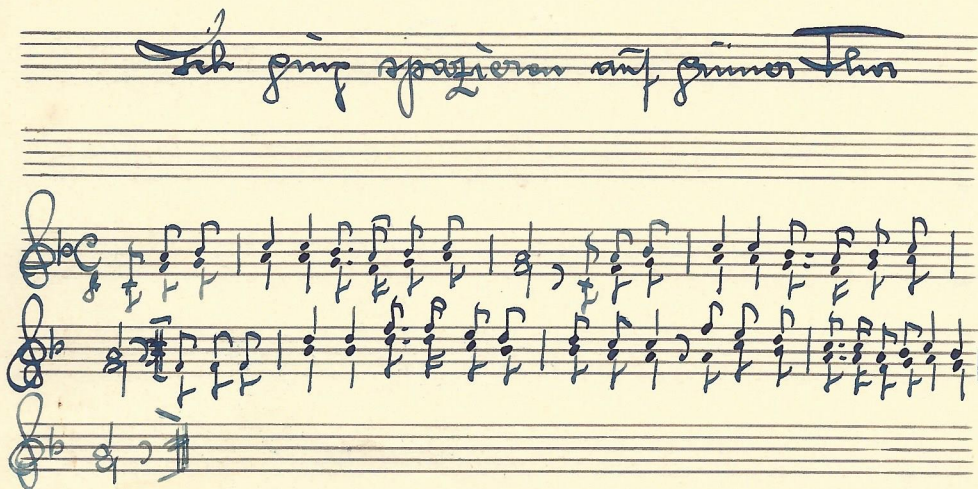 Ich ging spazieren auf grüner Flur